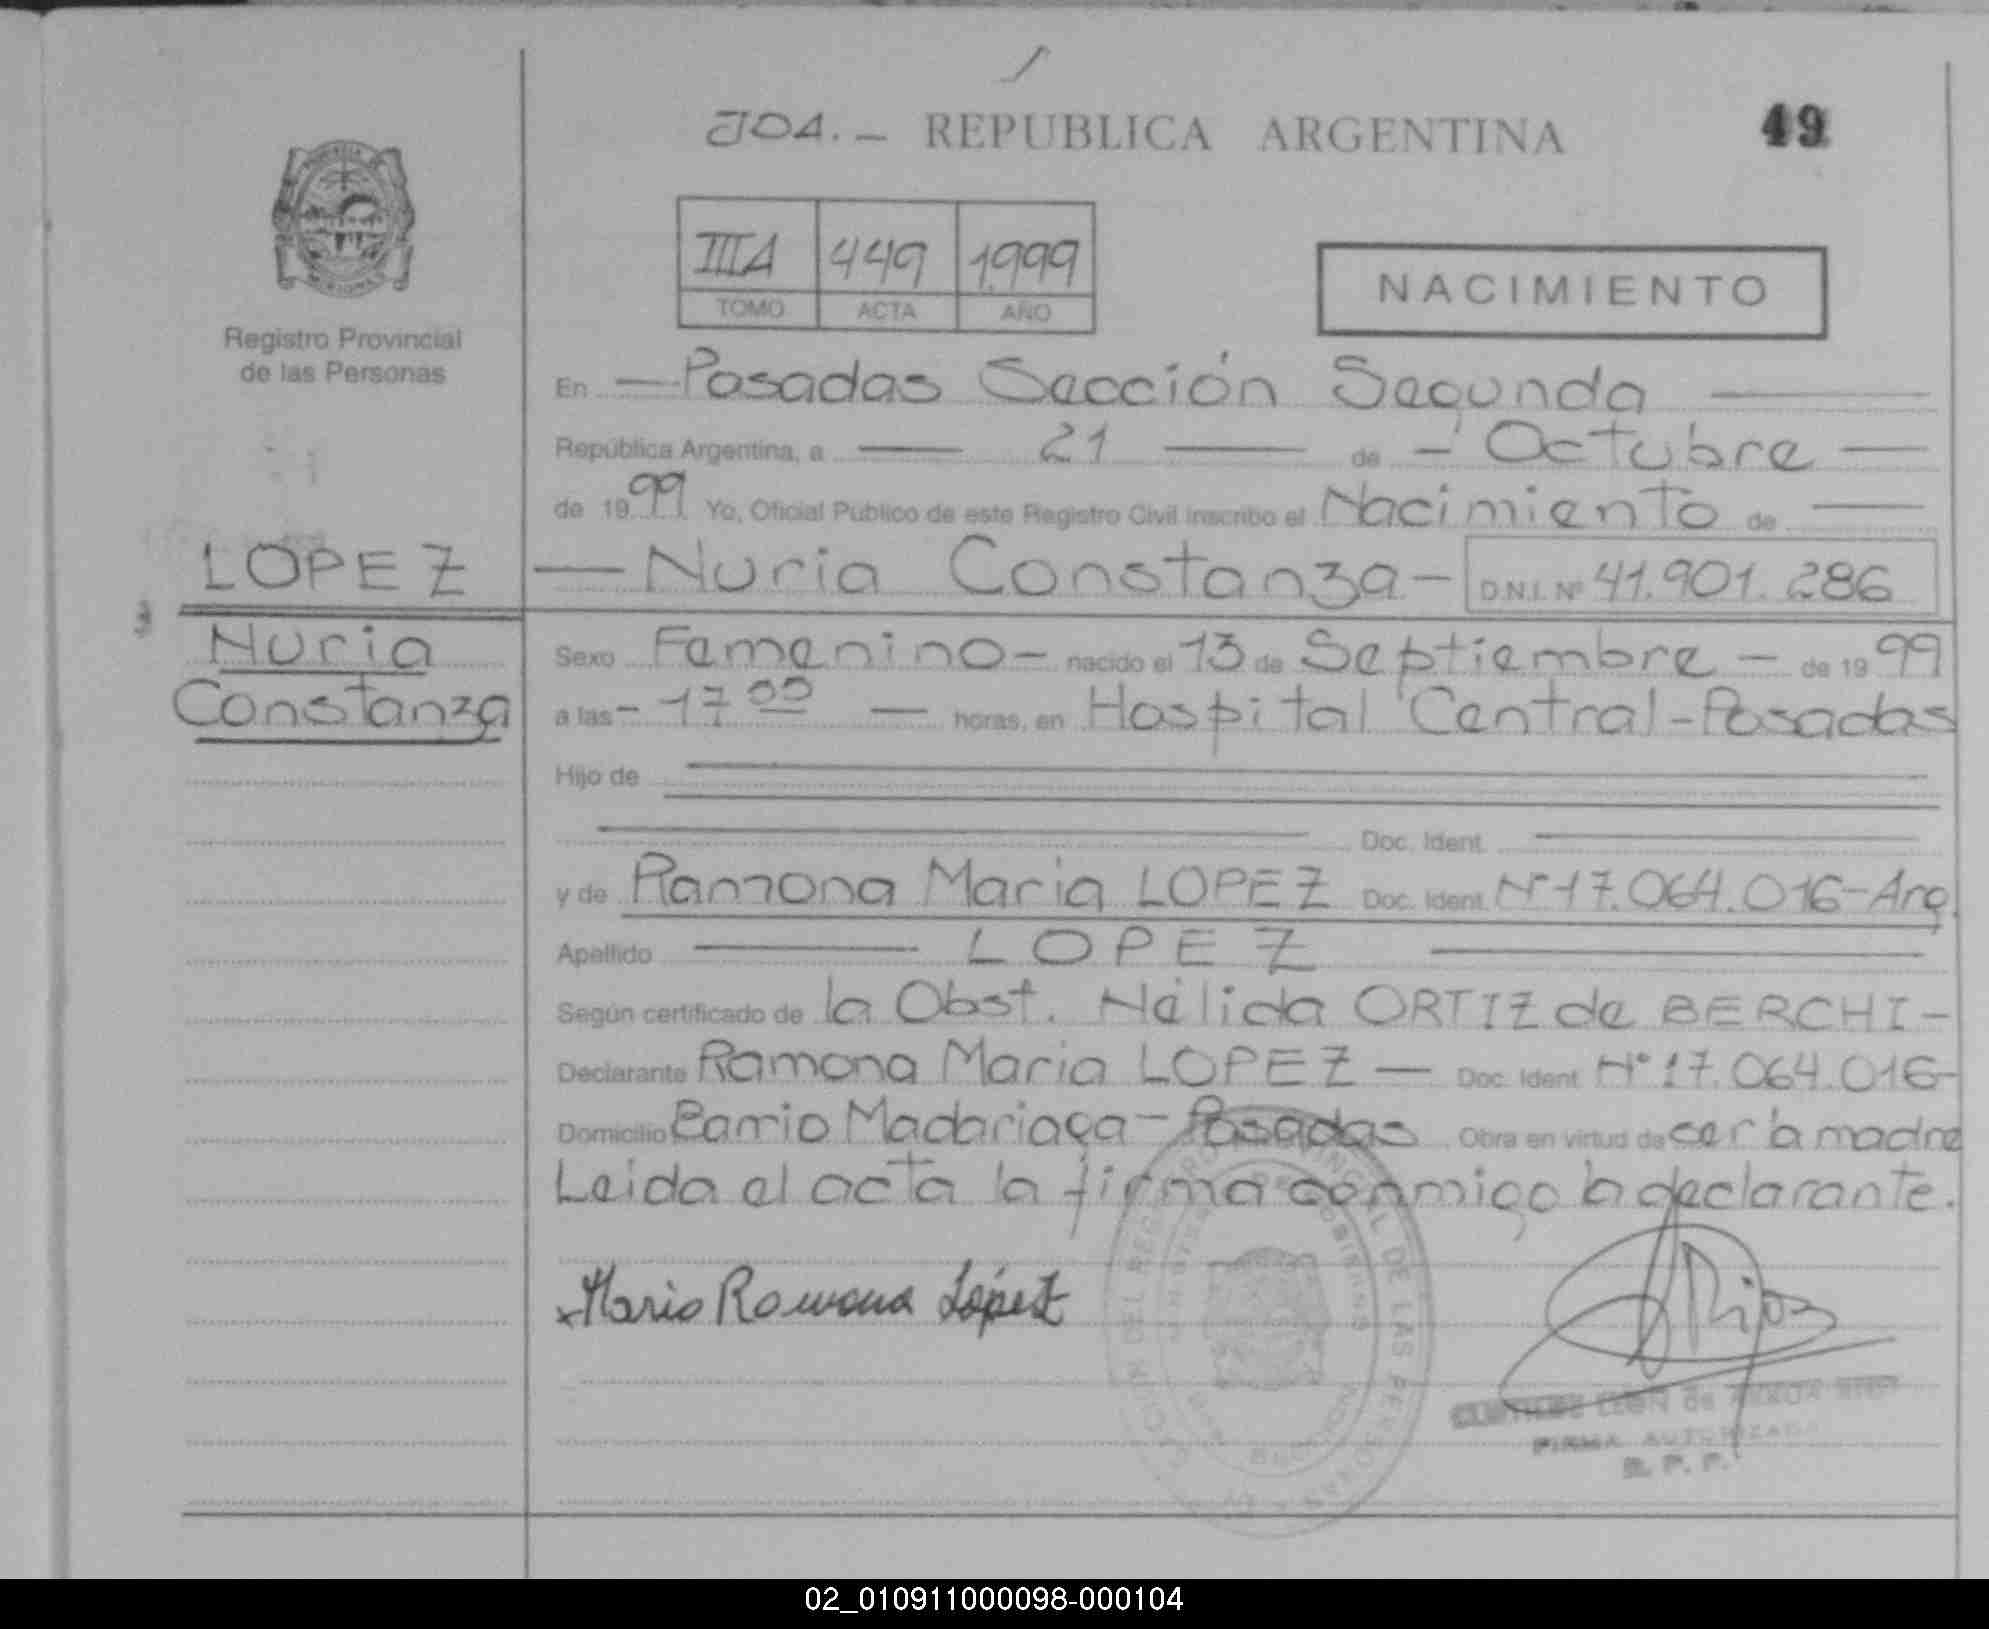 JOA. - REPUBLICA ARGENTINA 49
IIIA 449 1.999
TOMO ACTA AÑO
NACIMIENTO
Registro Provincial
de las Personas
En - Posadas Sección Segunda
República Argentina, a 21 de - Octubre
de 1999 Yo, Oficial Público de este Registro Civil inscribo el Nacimiento de
LOPEZ
Nuria
Constanza
- Nuria Constanza - D.N.I. Nº 41.901.286
Sexo Femenino - nacido el 13 de Septiembre - de 1999
a las - 17 00 - horas, en Hospital Central - Posadas
Hijo de
Doc. Ident.
y de Ramona Maria LOPEZ Doc. Ident. Nº 17.064.016 - Arg.
Apellido LOPEZ
Según certificado de la Obst. Nélida ORTIZ de BERCHI -
Declarante Ramona Maria LOPEZ - Doc. Ident. Nº 17.064.016 -
Domicilio Barrio Madariaga - Posadas Obra en virtud de ser la madre
Leida el acta la firma conmigo la declarante.
x Maria Ramona López
Rios
LEON de
FIRMA AUTORIZADA
R. P. P.
02_010911000098-000104